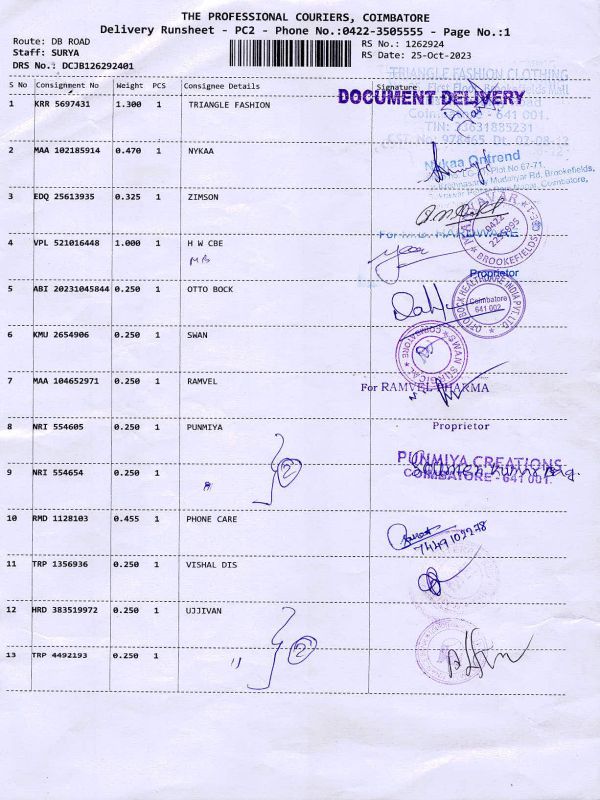 THE PROFESSIONAL COURIERS, COIMBATORE
Delivery Runsheet - PC2 - Phone No.:0422-3505555 - Page No.:1
Route: DB ROAD
RS No.: 1262924
Staff: SURYA
RS Date: 25-Oct-2023
DRS No.: DCJB126292401
S No Consignment No Weight PCS Consignee Details Signature
TRIANGLE FASHION CLOTHING
DOCUMENT DELIVERY
1 KRR 5697431 1.300 1 TRIANGLE FASHION
2 MAA 102185914 0.470 1 NYKAA
Nykaa Ontrend
Plot No 67-71,
Mudaliyar Rd, Brookefields,
Coimbatore,
3 EDQ 25613935 0.325 1 ZIMSON
BROOKEFIELDS
4 VPL 521016448 1.000 1 H W CBE
MB
Proprietor
5 ABI 20231045844 0.250 1 OTTO BOCK
OTTOBOCK HEALTHCARE INDIA PVT. LTD.
Coimbatore
641 002
6 KMU 2654906 0.250 1 SWAN
SWAN SURGICAL COIMBATORE
7 MAA 104652971 0.250 1 RAMVEL
For RAMVEL PHARMA
8 NRI 554605 0.250 1 PUNMIYA
Proprietor
2
PUNMIYA CREATIONS
COIMBATORE - 641 001.
9 NRI 554654 0.250 1 "
10 RMD 1128103 0.455 1 PHONE CARE
11 TRP 1356936 0.250 1 VISHAL DIS
12 HRD 383519972 0.250 1 UJJIVAN
2
13 TRP 4492193 0.250 1 "